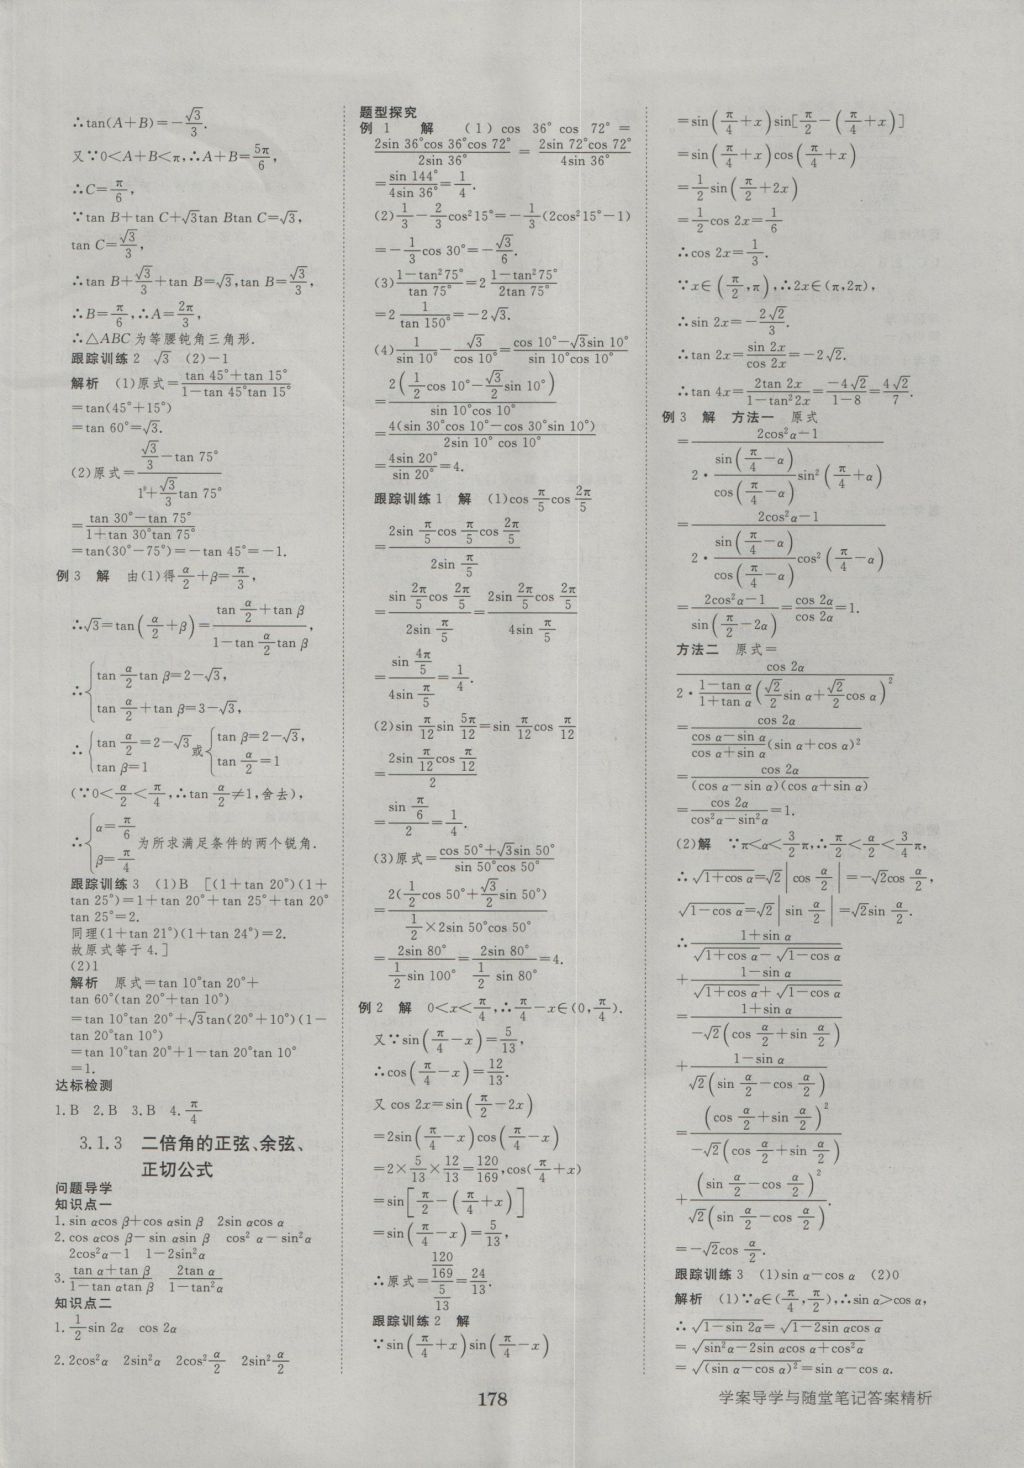 ∴tan(A+B)=-√3/3.
又∵0<A+B<π,∴A+B=5π/6,
∴C=π/6,
∵tan B+tan C+√3tan Btan C=√3,
tan C=√3/3,
∴tan B+√3/3+tan B=√3,tan B=√3/3,
∴B=π/6,∴A=2π/3,
∴△ABC为等腰钝角三角形.
跟踪训练2 √3 (2)-1
解析 (1)原式=(tan 45°+tan 15°)/(1-tan 45°tan 15°)
=tan(45°+15°)
=tan 60°=√3.
(2)原式=(√3/3-tan 75°)/(1+√3/3tan 75°)
=(tan 30°-tan 75°)/(1+tan 30°tan 75°)
=tan(30°-75°)=-tan 45°=-1.
例3 解 由(1)得α/2+β=π/3,
∴√3=tan(α/2+β)=(tan α/2+tan β)/(1-tan α/2tan β),
∴{tan α/2tan β=2-√3,
tan α/2+tan β=3-√3,
∴{tan α/2=2-√3 tan β=1 或{tan β=2-√3, tan α/2=1
(∵0<α/2<π/4,∴tan α/2≠1,舍去),
∴{α=π/6 β=π/4 为所求满足条件的两个锐角.
跟踪训练3 (1)B [(1+tan 20°)(1+
tan 25°)=1+tan 20°+tan 25°+tan 20°
tan 25°=2.
同理(1+tan 21°)(1+tan 24°)=2.
故原式等于4.]
(2)1
解析 原式=tan 10°tan 20°+
tan 60°(tan 20°+tan 10°)
=tan 10°tan 20°+√3tan(20°+10°)(1-
tan 20°tan 10°)
=tan 10°tan 20°+1-tan 20°tan 10°
=1.
达标检测
1.B 2.B 3.B 4.π/4
3.1.3 二倍角的正弦、余弦、
正切公式
问题导学
知识点一
1.sin αcos β+cos αsin β 2sin αcos α
2.cos αcos β-sin αsin β cos²α-sin²α
2cos²α-1 1-2sin²α
3.(tan α+tan β)/(1-tan αtan β) 2tan α/(1-tan²α)
知识点二
1.1/2sin 2α cos 2α
2.2cos²α 2sin²α 2cos²α/2 2sin²α/2
题型探究
例1 解 (1)cos 36°cos 72°=
2sin 36°cos 36°cos 72°/2sin 36°=2sin 72°cos 72°/4sin 36°
=sin 144°/4sin 36°=1/4.
(2)1/3-2/3cos²15°=-1/3(2cos²15°-1)
=-1/3cos 30°=-√3/6.
(3)(1-tan²75°)/tan 75°=2(1-tan²75°)/2tan 75°
=2 1/tan 150°=-2√3.
(4)1/sin 10°-√3/cos 10°=(cos 10°-√3sin 10°)/sin 10°cos 10°
=2(1/2cos 10°-√3/2sin 10°)/sin 10°cos 10°
=4(sin 30°cos 10°-cos 30°sin 10°)/2sin 10°cos 10°
=4sin 20°/sin 20°=4.
跟踪训练1 解 (1)cos π/5cos 2π/5
=2sin π/5cos π/5cos 2π/5/2sin π/5
=sin 2π/5cos 2π/5/2sin π/5=2sin 2π/5cos 2π/5/4sin π/5
=sin 4π/5/4sin π/5=1/4.
(2)sin π/12sin 5π/12=sin π/12cos π/12
=2sin π/12cos π/12/2
=sin π/6/2=1/4.
(3)原式=(cos 50°+√3sin 50°)/sin 50°cos 50°
=2(1/2cos 50°+√3/2sin 50°)/(1/2×2sin 50°cos 50°)
=2sin 80°/(1/2sin 100°)=2sin 80°/(1/2sin 80°)=4.
例2 解 0<x<π/4,∴π/4-x∈(0,π/4).
又∵sin(π/4-x)=5/13,
∴cos(π/4-x)=12/13.
又cos 2x=sin(π/2-2x)
=2sin(π/4-x)cos(π/4-x)
=2×5/13×12/13=120/169,cos(π/4+x)
=sin[π/2-(π/4+x)]
=sin(π/4-x)=5/13,
∴原式=(120/169)/(5/13)=24/13.
跟踪训练2 解
∵sin(π/4+x)sin(π/4-x)
=sin(π/4+x)sin[π/2-(π/4+x)]
=sin(π/4+x)cos(π/4+x)
=1/2sin(π/2+2x)
=1/2cos 2x=1/6
∴cos 2x=1/3.
∵x∈(π/2,π),∴2x∈(π,2π),
∴sin 2x=-2√2/3.
∴tan 2x=sin 2x/cos 2x=-2√2.
∴tan 4x=2tan 2x/(1-tan²2x)=-4√2/(1-8)=4√2/7.
例3 解 方法一 原式
=(2cos²α-1)/(2·sin(π/4-α)/cos(π/4-α)sin²(π/4+α))
=(2cos²α-1)/(2·sin(π/4-α)/cos(π/4-α)cos²(π/4-α))
=(2cos²α-1)/sin(π/2-2α)=cos 2α/cos 2α=1.
方法二 原式=
cos 2α/(2·(1-tan α)/(1+tan α)(√2/2sin α+√2/2cos α)²)
=cos 2α/((cos α-sin α)/(cos α+sin α)(sin α+cos α)²)
=cos 2α/((cos α-sin α)(cos α+sin α))
=cos 2α/(cos²α-sin²α)=1.
(2)解 ∵π<α<3/2π,∴π/2<α/2<3/4π,
∴√(1+cos α)=√2|cos α/2|=-√2cos α/2,
√(1-cos α)=√2|sin α/2|=√2sin α/2.
∴(1+sin α)/(√(1+cos α)-√(1-cos α))
+(1-sin α)/(√(1+cos α)+√(1-cos α))
=(1+sin α)/(-√2(cos α/2+sin α/2))
+(1-sin α)/(√2(sin α/2-cos α/2))
=(cos α/2+sin α/2)²/(-√2(cos α/2+sin α/2))
+(sin α/2-cos α/2)²/(√2(sin α/2-cos α/2))
=-√2cos α/2.
跟踪训练3 (1)sin α-cos α (2)0
解析 (1)∵α∈(π/4,π/2),∴sin α>cos α,
∴√(1-sin 2α)=√(1-2sin αcos α)
=√(sin²α-2sin αcos α+cos²α)
=√(sin α-cos α)²=sin α-cos α.
178
学案导学与随堂笔记答案精析